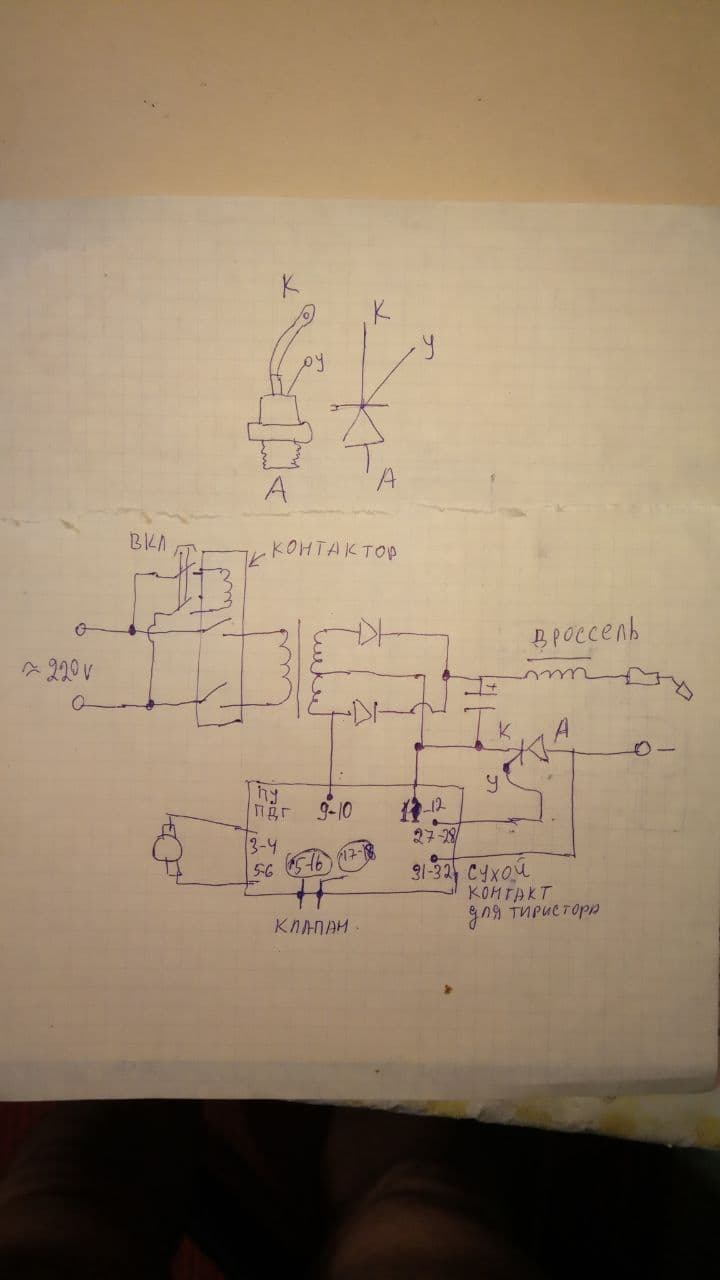 К
К
У
У
А
А
ВКЛ
КОНТАКТОР
ДРОССЕЛЬ
≈ 220V
+
К
А
У
–
ПУ
ПДГ
9-10
11-12
27-28
3-4
5-6
15-16
17-18
31-32
СУХОЙ
КОНТАКТ
для ТИРИСТОРА
КЛАПАН